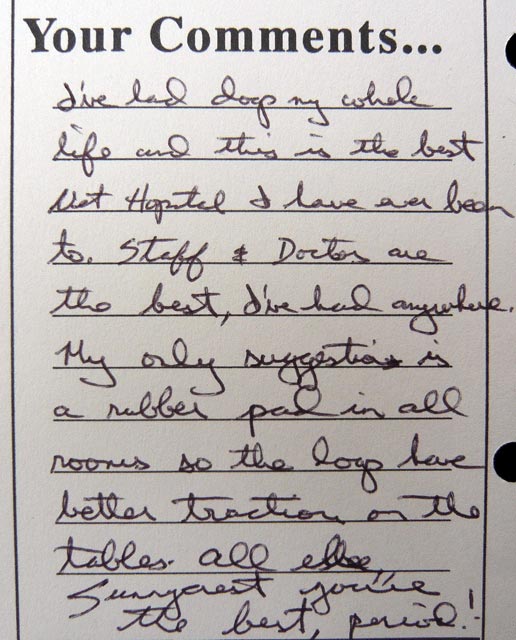 Your Comments...
I've had dogs my whole
life and this is the best
Vet Hopital I have ever been
to. Staff & Doctors are
the best, I've had anywhere.
My only suggestion is
a rubber pad in all
rooms so the dogs have
better traction on the
tables. all else,
Sunnycrest you're
the best, period!